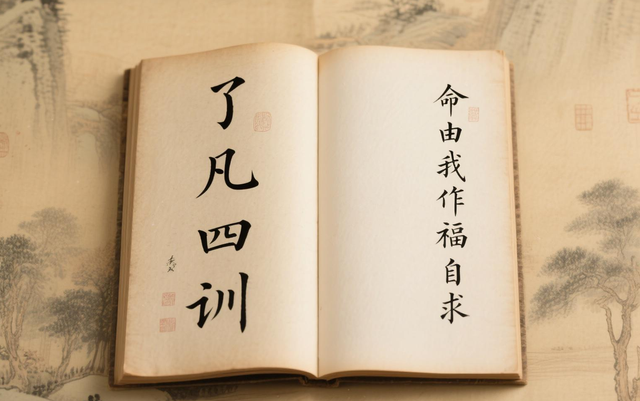 了凡四训
命由我作福自求